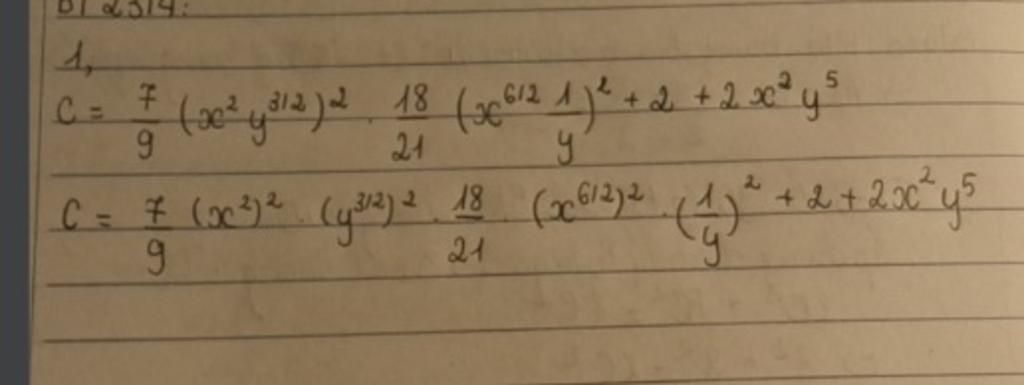 1,
C = 7/9 (x² y^3/2)² · 18/21 (x^6/2 1/y)² + 2 + 2x² y⁵
C = 7/9 (x²)² · (y^3/2)² · 18/21 · (x^6/2)² · (1/y)² + 2 + 2x² y⁵